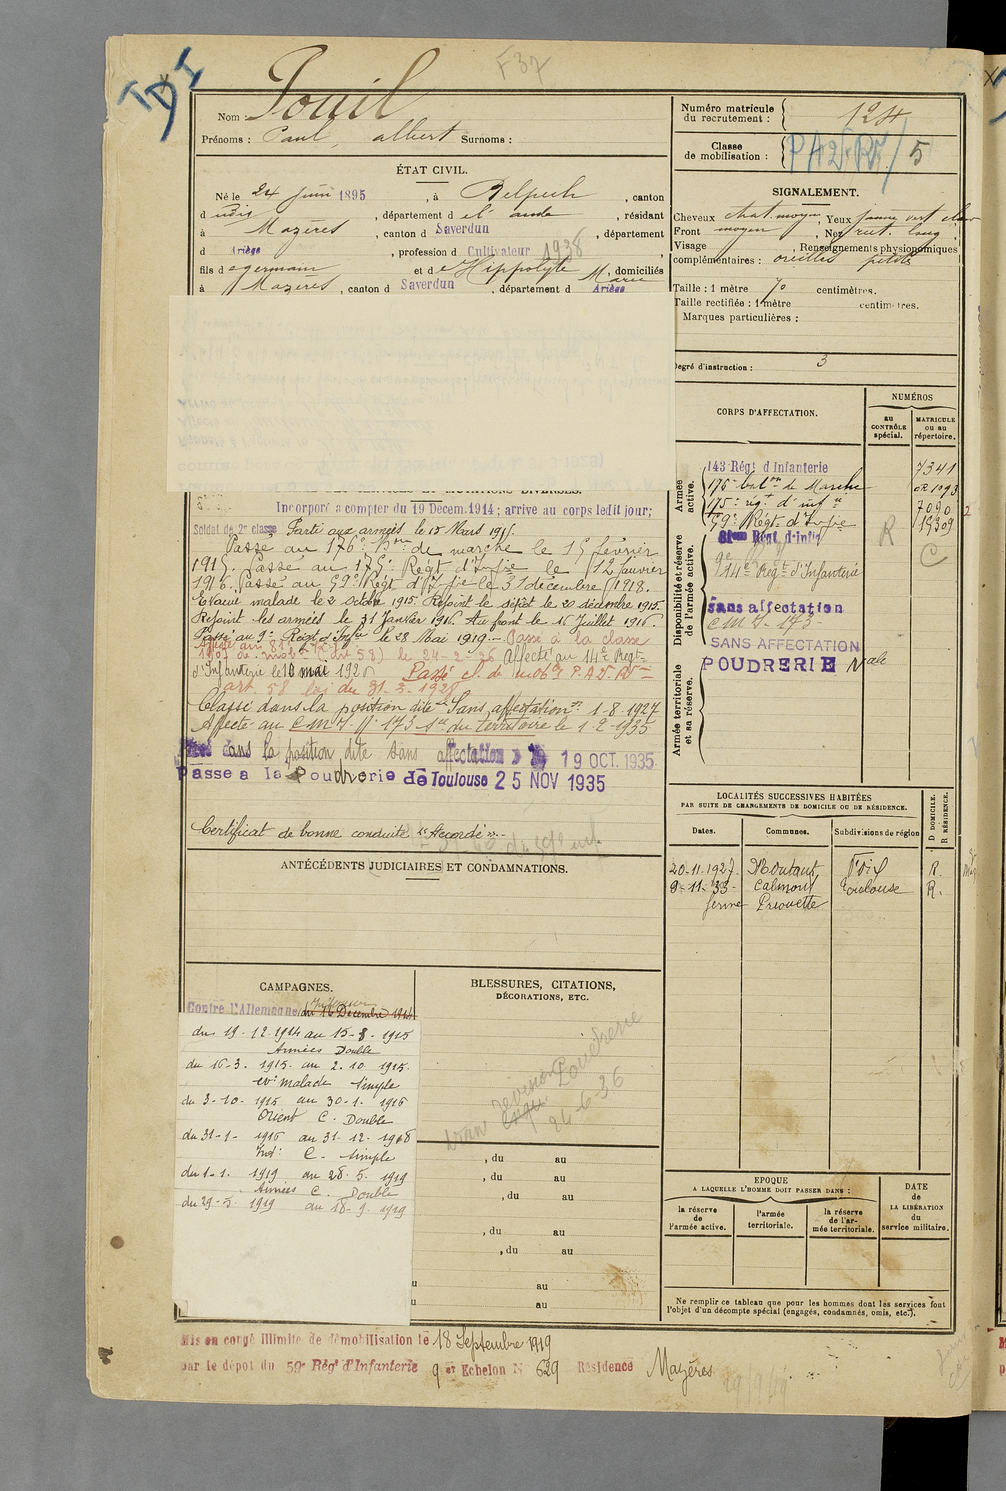 F37
Nom Pouil
Prénoms : Paul, albert Surnoms :
ÉTAT CIVIL.
Né le 24 Juin 1895, à Belpech, canton
d udis, département d el' aude, résidant
à Mazères, canton d Saverdun, département
d Ariège, profession d Cultivateur 1938
fils d e germain et d e Hippolyte Marie, domiciliés
à Mazères, canton d Saverdun, département d Ariège
Numéro matricule du recrutement : 124
Classe de mobilisation : 5
SIGNALEMENT.
Cheveux chat. moyen, Yeux jaune vert clair
Front moyen, Nez rect. long
Visage , Renseignements physionomiques
complémentaires : oreilles petites
Taille : 1 mètre 70 centimètres.
Taille rectifiée : 1 mètre centimètres.
Marques particulières :
Degré d'instruction : 3
CORPS D'AFFECTATION.
NUMÉROS
au CONTRÔLE spécial.
MATRICULE ou au répertoire.
Armée active.
143 Régt d'Infanterie 7341
176e baton de Marche 1093
175e regt d'infie 7090
59e Régt d'Infie 19309
Disponibilité et réserve de l'armée active.
81eme Régt d'infie
9e
14e Regt d'Infanterie
R
C
sans affectation
C M I. 173
SANS AFFECTATION
POUDRERIE Nale
Armée territoriale et sa réserve.
MUTATIONS DIVERSES.
Incorporé a compter du 19 Décem. 1914; arrive au corps ledit jour;
Soldat de 2e classe Parti aux armées le 15 Mars 1915.
Passé au 176e Bon de marche le 15 février
1915. Passé au 175e Regt d'Infie le 12 Janvier
1916. Passé au 59e Régt d'Infie le 31 décembre 1918.
Evacué malade le 2 octobre 1915. Rejoint le dépôt le 20 décembre 1915.
Rejoint les armées le 31 Janvier 1916. Au front le 16 Juillet 1916.
Passé au 9e Régt d'Infie le 28 Mai 1919. - Passé à la classe
de mob 58) le 24-2-26 Affecté au 14e Regt
d'Infanterie le 10 mai 1920 Passé cl. de mobon P.A.D.R.
art. 58 loi du 31-3-1928
Classé dans la position dite "Sans affectation" 1-8-1927
Affecté au C M I. No 173 Son du territoire le 1-2-1935
dans la position dite sans affectation 19 OCT. 1935
Passé a la Poudrerie de Toulouse 25 NOV 1935
Certificat de bonne conduite "Accordé".
ANTÉCÉDENTS JUDICIAIRES ET CONDAMNATIONS.
LOCALITÉS SUCCESSIVES HABITÉES
PAR SUITE DE CHANGEMENTS DE DOMICILE OU DE RÉSIDENCE.
Dates. Communes. Subdivisions de région D DOMICILE. R RÉSIDENCE.
20-11-1927 Montaut Foix R.
9-11-33 Calmont Toulouse R.
ferme Priouette
CAMPAGNES.
Contre l'Allemagne Intérieur du 16 Décembre 1914
du 19-12-1914 au 15-3-1915
Armées Double
du 16-3. 1915. au 2.10.1915.
evé malade Simple
du 3-10-1915 au 30-1-1916
Orient C. Double
du 31-1-1916 au 31-12-1918
Int: C. Simple
du 1-1. 1919 au 28.5.1919
Armées C. Double
du 29-5. 1919 au 18-9.1919
BLESSURES, CITATIONS,
DÉCORATIONS, ETC.
revision Poudrerie
24-6-36
, du au
, du au
, du au
, du au
, du au
au
au
EPOQUE
A LAQUELLE L'HOMME DOIT PASSER DANS :
la réserve de l'armée active.
l'armée territoriale.
la réserve de l'armée territoriale.
DATE de LA LIBÉRATION du service militaire.
Ne remplir ce tableau que pour les hommes dont les services font
l'objet d'un décompte spécial (engagés, condamnés, omis, etc.).
Mis en congé illimité de démobilisation le 18 Septembre 1919
par le dépôt du 59e Régt d'Infanterie 9e Echelon N° 629 Résidence Mazères